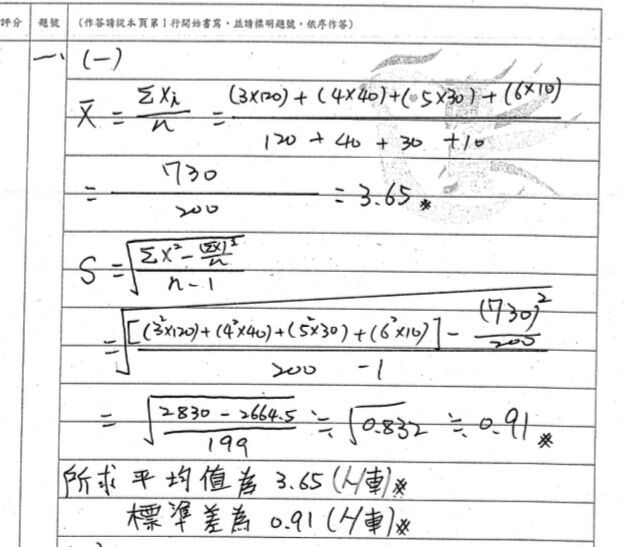 評分 題號 (作答請從本頁第1行開始書寫、並請標明題號,依序作答)
一、(一)
X̄ = ΣXi/n = (3×120)+(4×40)+(5×30)+(6×10) / 120+40+30+10
= 730/200 = 3.65※
S = √((ΣX² - (ΣX)²/n) / (n-1))
= √(([(3²×120)+(4²×40)+(5²×30)+(6²×10)] - (730)²/200) / (200-1))
= √((2830-2664.5)/199) ≒ √0.832 ≒ 0.91※
所求平均值為 3.65(人/車)※
標準差為 0.91(人/車)※